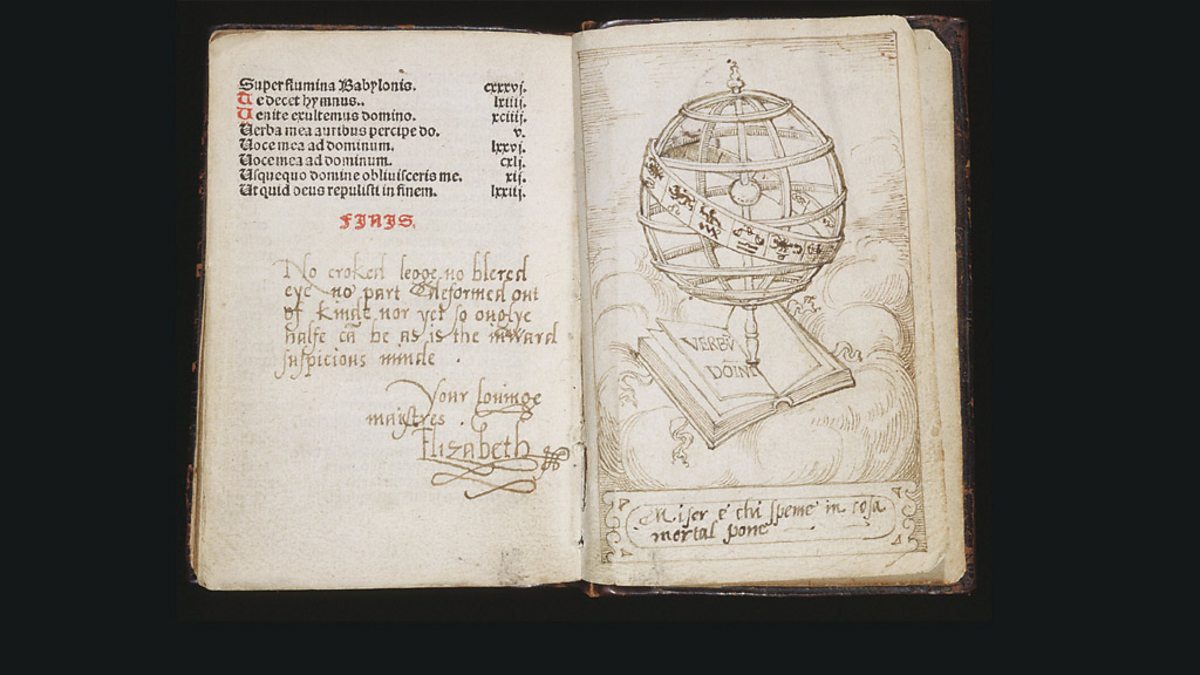 Super flumina Babylonis. cxxxvj.
Te decet hymnus.. lxiiij.
Venite exultemus domino. xciiij.
Verba mea auribus percipe do. v.
Voce mea ad dominum. lxxvj.
Voce mea ad dominum. cxlj.
Usquequo domine obliuisceris me. xij.
Ut quid deus repulisti in finem. lxxiij.
FINIS.
No croked legge no blered
eye no part deformed out
of kinde nor yet so ouglye
halfe cā be as is the inward
suspicious minde .
Your louinge
maistres .
Elizabeth
VERBŪ
DOINI
Miser e' chi speme in cosa
mortal pone